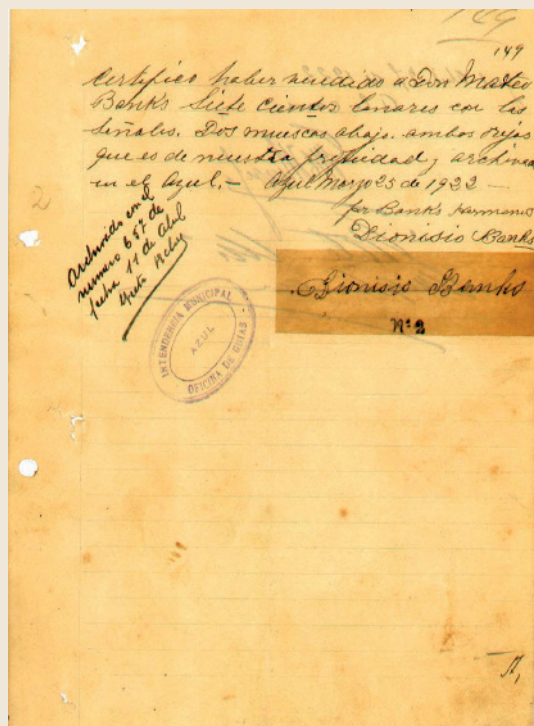 149
149
Certifico haber vendido a Don Mateo
Banks Siete cientos lanares con las
señales. Dos muescas abajo. ambas orejas
que es de nuestra propiedad, y archivada
en el Azul.— Azul Marzo 25 de 1922 —
por Banks Hermanos
Dionisio Banks
2
Archivado en el
numero 657 de
fecha 11 de Abril
Dionisio Banks
Nº 2
INTENDENCIA MUNICIPAL
AZUL
OFICINA DE GUIAS